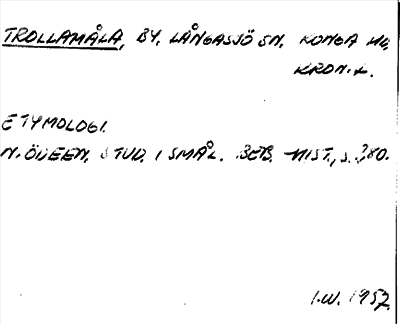 TROLLAMÅLA, BY, LÅNGASJÖ SN. KONGA HD,
KRON. L.
ETYMOLOGI.
N. ÖDEEN, STUD. I SMÅL. BEB. HIST., S. 380.
I.W. 1957.